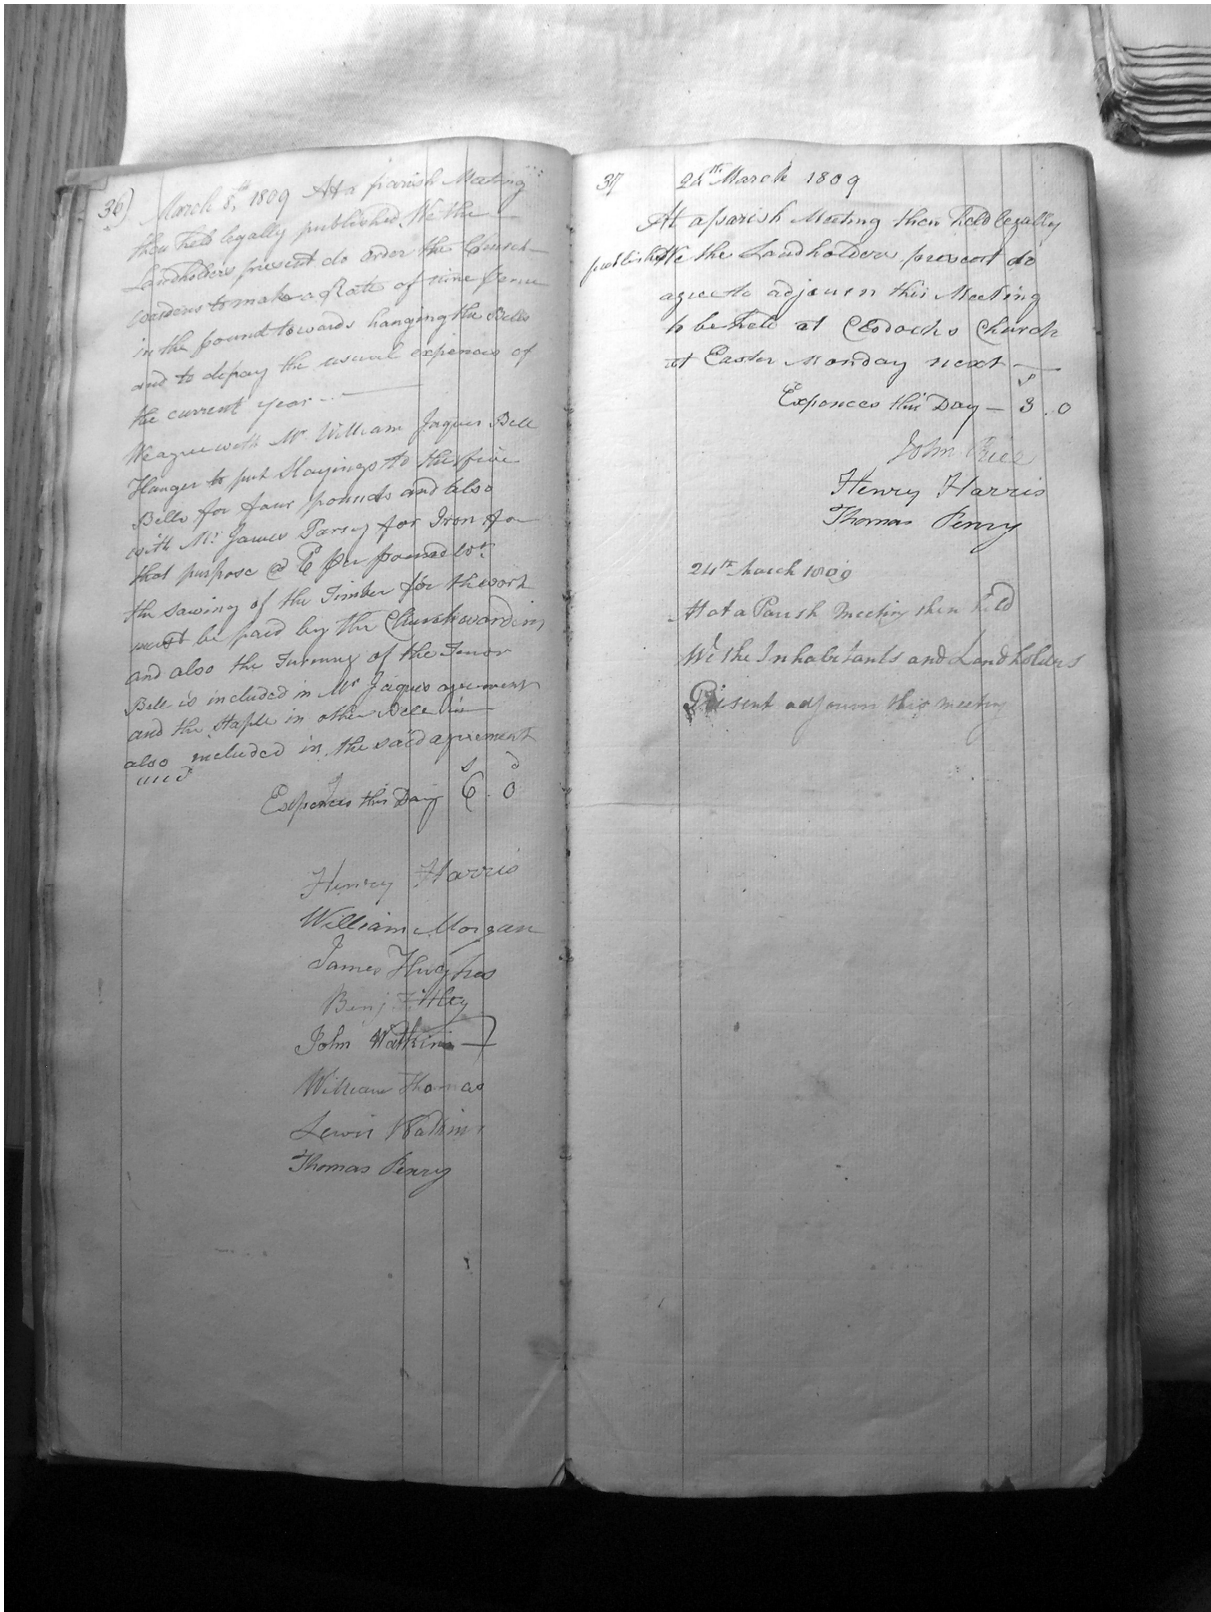 36) March 8th, 1809 At a parish Meeting
then held legally published, We the
Landholders present do order the Church
wardens to make a Rate of nine pence
in the pound towards hanging the Bells
and to defray the usual expences of
the current year
We agree with Mr William Jaques Bell
Hanger to put Stayings to the five
Bells for four pounds and also
with Mr James Parry for Iron for
that purpose @ per pound wt.
the sawing of the Timber for the work
must be paid by the Churchwardens
and also the Turning of the Tenor
Bell is included in Mr Jaques agreement
and the Staple in other Bell is
also included in the said agreement
s d
Expences this Day 6 . 0
Henry Harris
William Morgan
James Hughes
Benj
John Watkins
William Thomas
Lewis Watkins
Thomas Penry
37 24th March 1809
At a parish Meeting then held legally
published We the Landholders present do
agree to adjourn this Meeting
to be held at Clodocks Church
at Easter Monday next
s
Expences this Day — 3 . 0
John Price
Henry Harris
Thomas Penry
24th March 1809
At at a Parish Meeting then held
We the Inhabitants and Landholders
Present adjourn this meeting